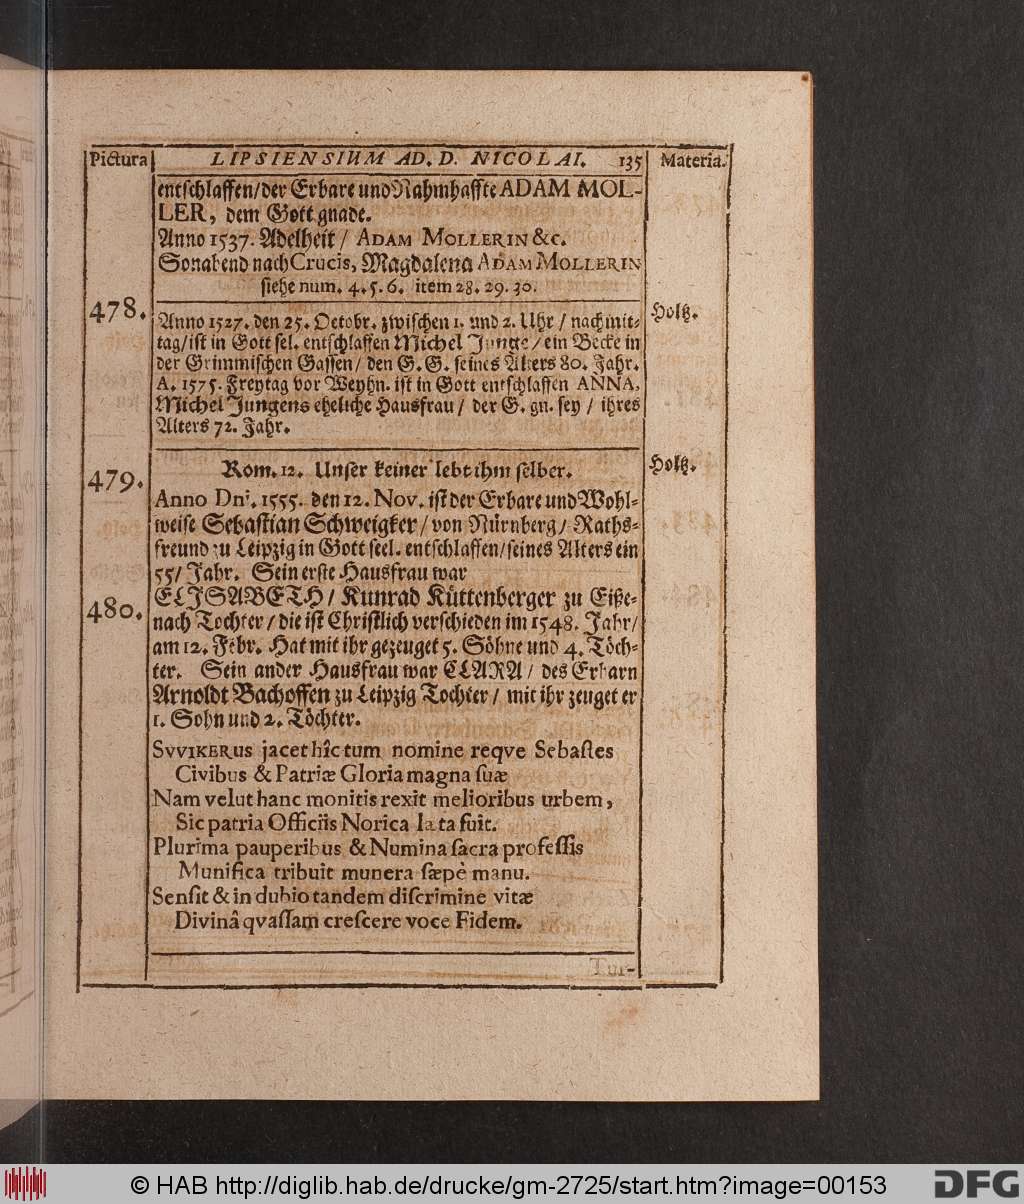 Pictura LIPSIENSIUM AD. D. NICOLAI. 135 Materia.
entschlaffen/der Erbare und Nahmhaffte ADAM MOL-
LER, dem Gott gnade.
Anno 1537. Adelheit / ADAM MOLLERIN &c.
Sonabend nach Crucis, Magdalena ADAM MOLLERIN
siehe num. 4. 5. 6. item 28. 29. 30.
478. Holtz.
Anno 1527. den 25. Octobr. zwischen 1. und 2. Uhr / nachmit-
tag/ist in Gott sel. entschlaffen Michel Junge / ein Becke in
der Grimmischen Gassen / den G. G. seines Alters 80. Jahr.
A. 1575. Freytag vor Weyhn. ist in Gott entschlaffen ANNA,
Michel Jungens eheliche Hausfrau / der G. gn. sey / ihres
Alters 72. Jahr.
479. Rom. 12. Unser keiner lebt ihm selber. Holtz.
Anno Dnⁱ. 1555. den 12. Nov. ist der Erbare und Wohl-
weise Sebastian Schweigker / von Nürnberg / Raths-
freund zu Leipzig in Gott seel. entschlaffen/seines Alters ein
55/ Jahr. Sein erste Hausfrau war
480. ELISABETH / Kunrad Küttenberger zu Eiße-
nach Tochter / die ist Christlich verschieden im 1548. Jahr/
am 12. Febr. Hat mit ihr gezeuget 5. Söhne und 4. Töch-
ter. Sein ander Hausfrau war CLARA / des Erbarn
Arnoldt Bachoffen zu Leipzig Tochter / mit ihr zeuget er
1. Sohn und 2. Töchter.
SVVIKERUS jacet hîc tum nomine reqve Sebastes
Civibus & Patriæ Gloria magna suæ
Nam velut hanc monitis rexit melioribus urbem,
Sic patria Officiis Norica læta fuit.
Plurima pauperibus & Numina sacra professis
Munifica tribuit munera sæpè manu.
Sensit & in dubio tandem discrimine vitæ
Divinâ qvassam crescere voce Fidem.
Tur-
© HAB http://diglib.hab.de/drucke/gm-2725/start.htm?image=00153 DFG